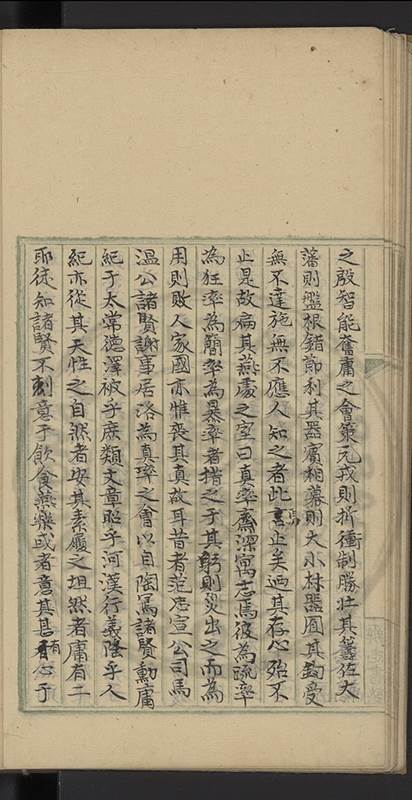 之啟智能奮庸之會策元戎則折衝制勝壯其籌佐大
藩則盤根錯節利其器賓相幕則大小材器圓其鈞受
無不達施無不應人知之者此焉止矣迺其存心殆不
止是故扁其燕處之室曰真率齋深寓志焉彼為疏率
為狂率為簡率為暴率者措之于其躬則災出之而為
用則敗人家國亦惟喪其真故耳昔者范忠宣公司馬
溫公諸賢謝事居洛為真率之會以自陶焉諸賢勳庸
紀于太常德澤被乎庶類文章昭乎河漢行義隆乎人
紀亦從其天性之自然者安其素履之坦然者庸有二
耶徒知諸賢不刻意于飲食燕樂或者意其甚有心于